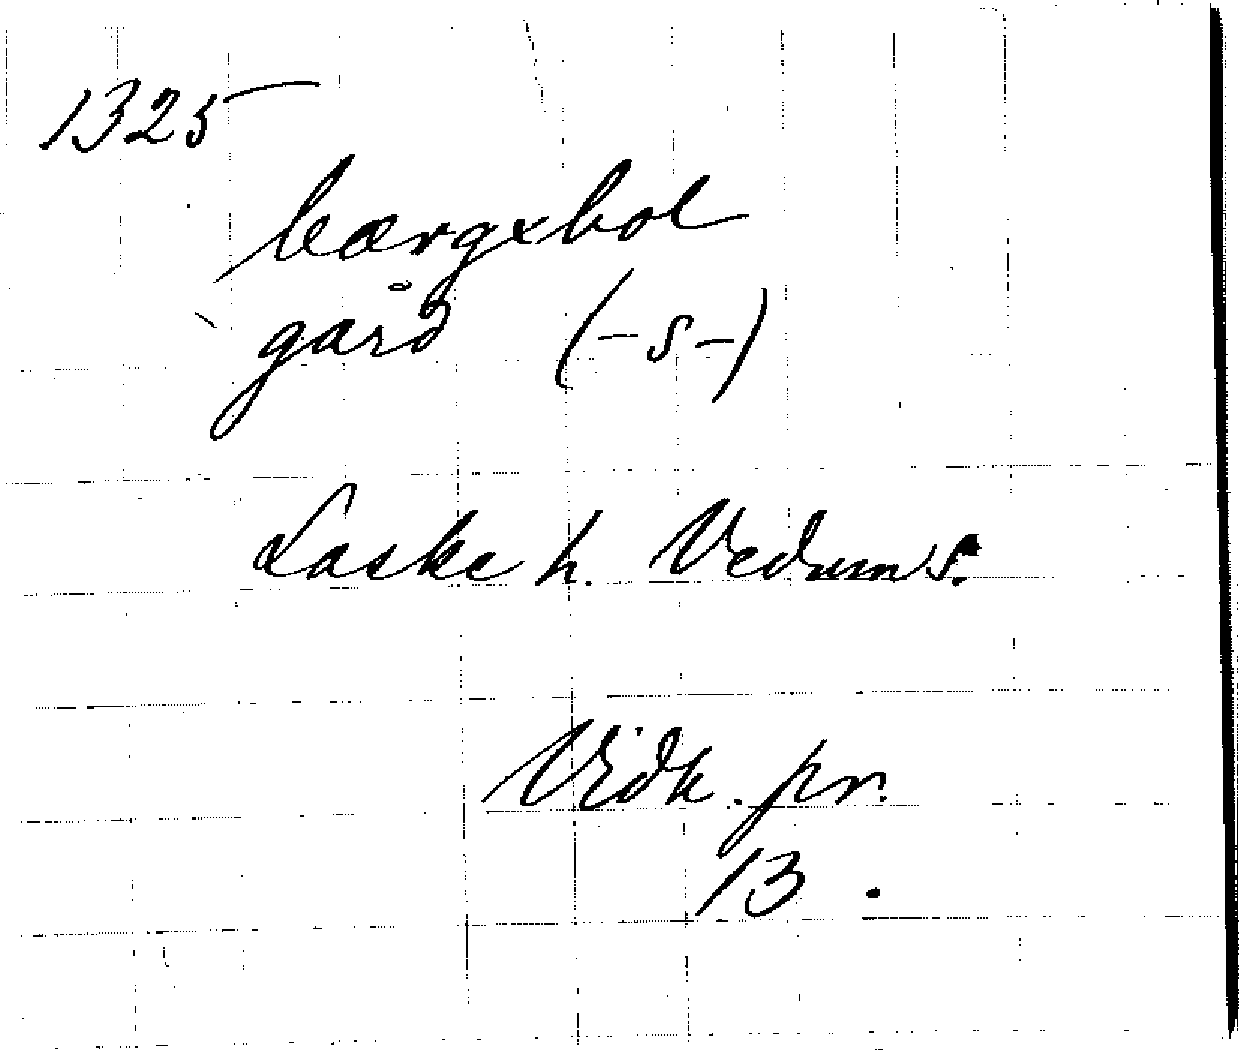 1325
bærgxbol
gård (-s-)
Laske h. Vedum s.
Vidk. pr.
13.